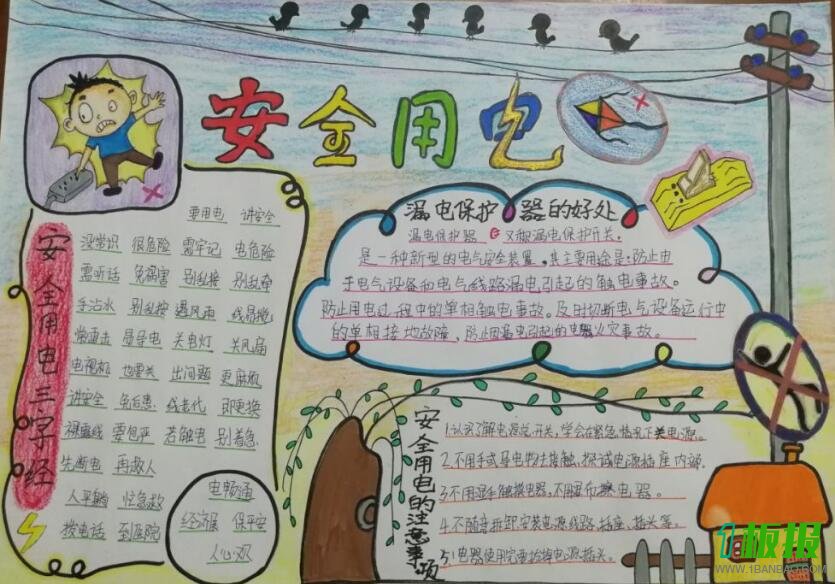 安全用电
安全用电三字经
要用电 讲安全
没常识 很危险 需牢记 电危险
需听话 免祸害 别乱接 别乱牵
手沾水 别乱按 遇风雨 线易搅
常雷击 易导电 关电灯 关风扇
电视机 也要关 出问题 更麻烦
讲安全 免后患 线老化 即更换
裸露线 要包严 若触电 别着急
先断电 再救人
人平躺 快急救
拨电话 到医院
电畅通
经济展 保平安
人心欢
漏电保护器的好处
漏电保护器 又称漏电保护开关。
是一种新型的电气安全装置。其主要用途是:防止由
于电气设备和电气线路漏电引起的触电事故。
防止用电过程中的单相触电事故。及时切断电气设备运行中
的单相接地故障,防止因漏电引起的电器火灾事故。
安全用电的注意事项
1.认识了解电源总开关,学会在紧急情况下关电源。
2.不用手或导电物去接触、探试电源插座内部。
3.不用湿手触摸电器,不用湿布擦电器。
4.不随意拆卸、安装电源线路、插座、插头等。
5.电器使用完要拔掉电源插头。
1板报
WWW.1BANBAO.COM